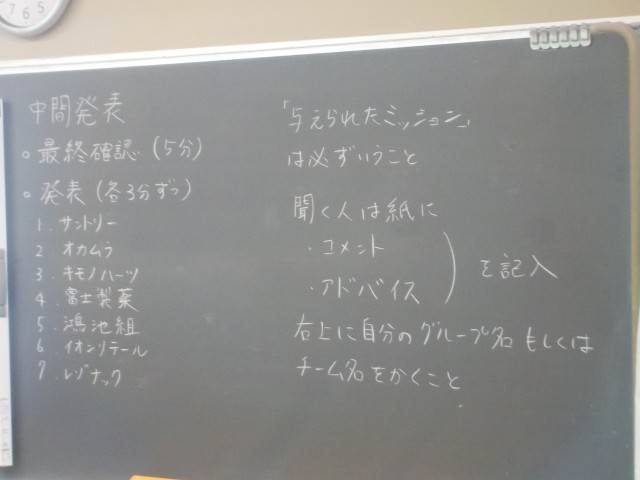 中間発表
○ 最終確認 (5分)
○ 発表 (各3分ずつ)
1. サントリー
2 オカムラ
3. キモノハーツ
4. 富士製薬
5. 鴻池組
6 イオンリテール
7. レゾナック
「与えられたミッション」
は必ずいうこと
聞く人は紙に
・コメント
・アドバイス
を記入
右上に自分のグループ名もしくは
チーム名をかくこと
7 6 5